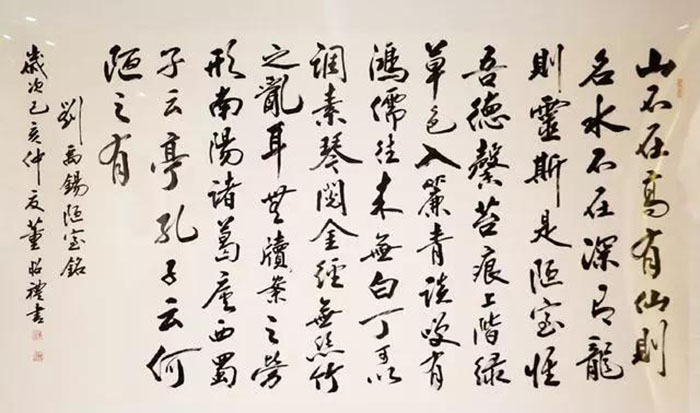 山不在高有仙則
名水不在深有龍
則靈斯是陋室惟
吾德馨苔痕上階緑
草色入簾青談笑有
鴻儒往來無白丁可以
調素琴閱金經無絲竹
之亂耳無牘案之勞
形南陽諸葛廬西蜀
子云亭孔子云何
陋之有
劉禹錫陋室銘
歲次己亥仲夏董昭禮書